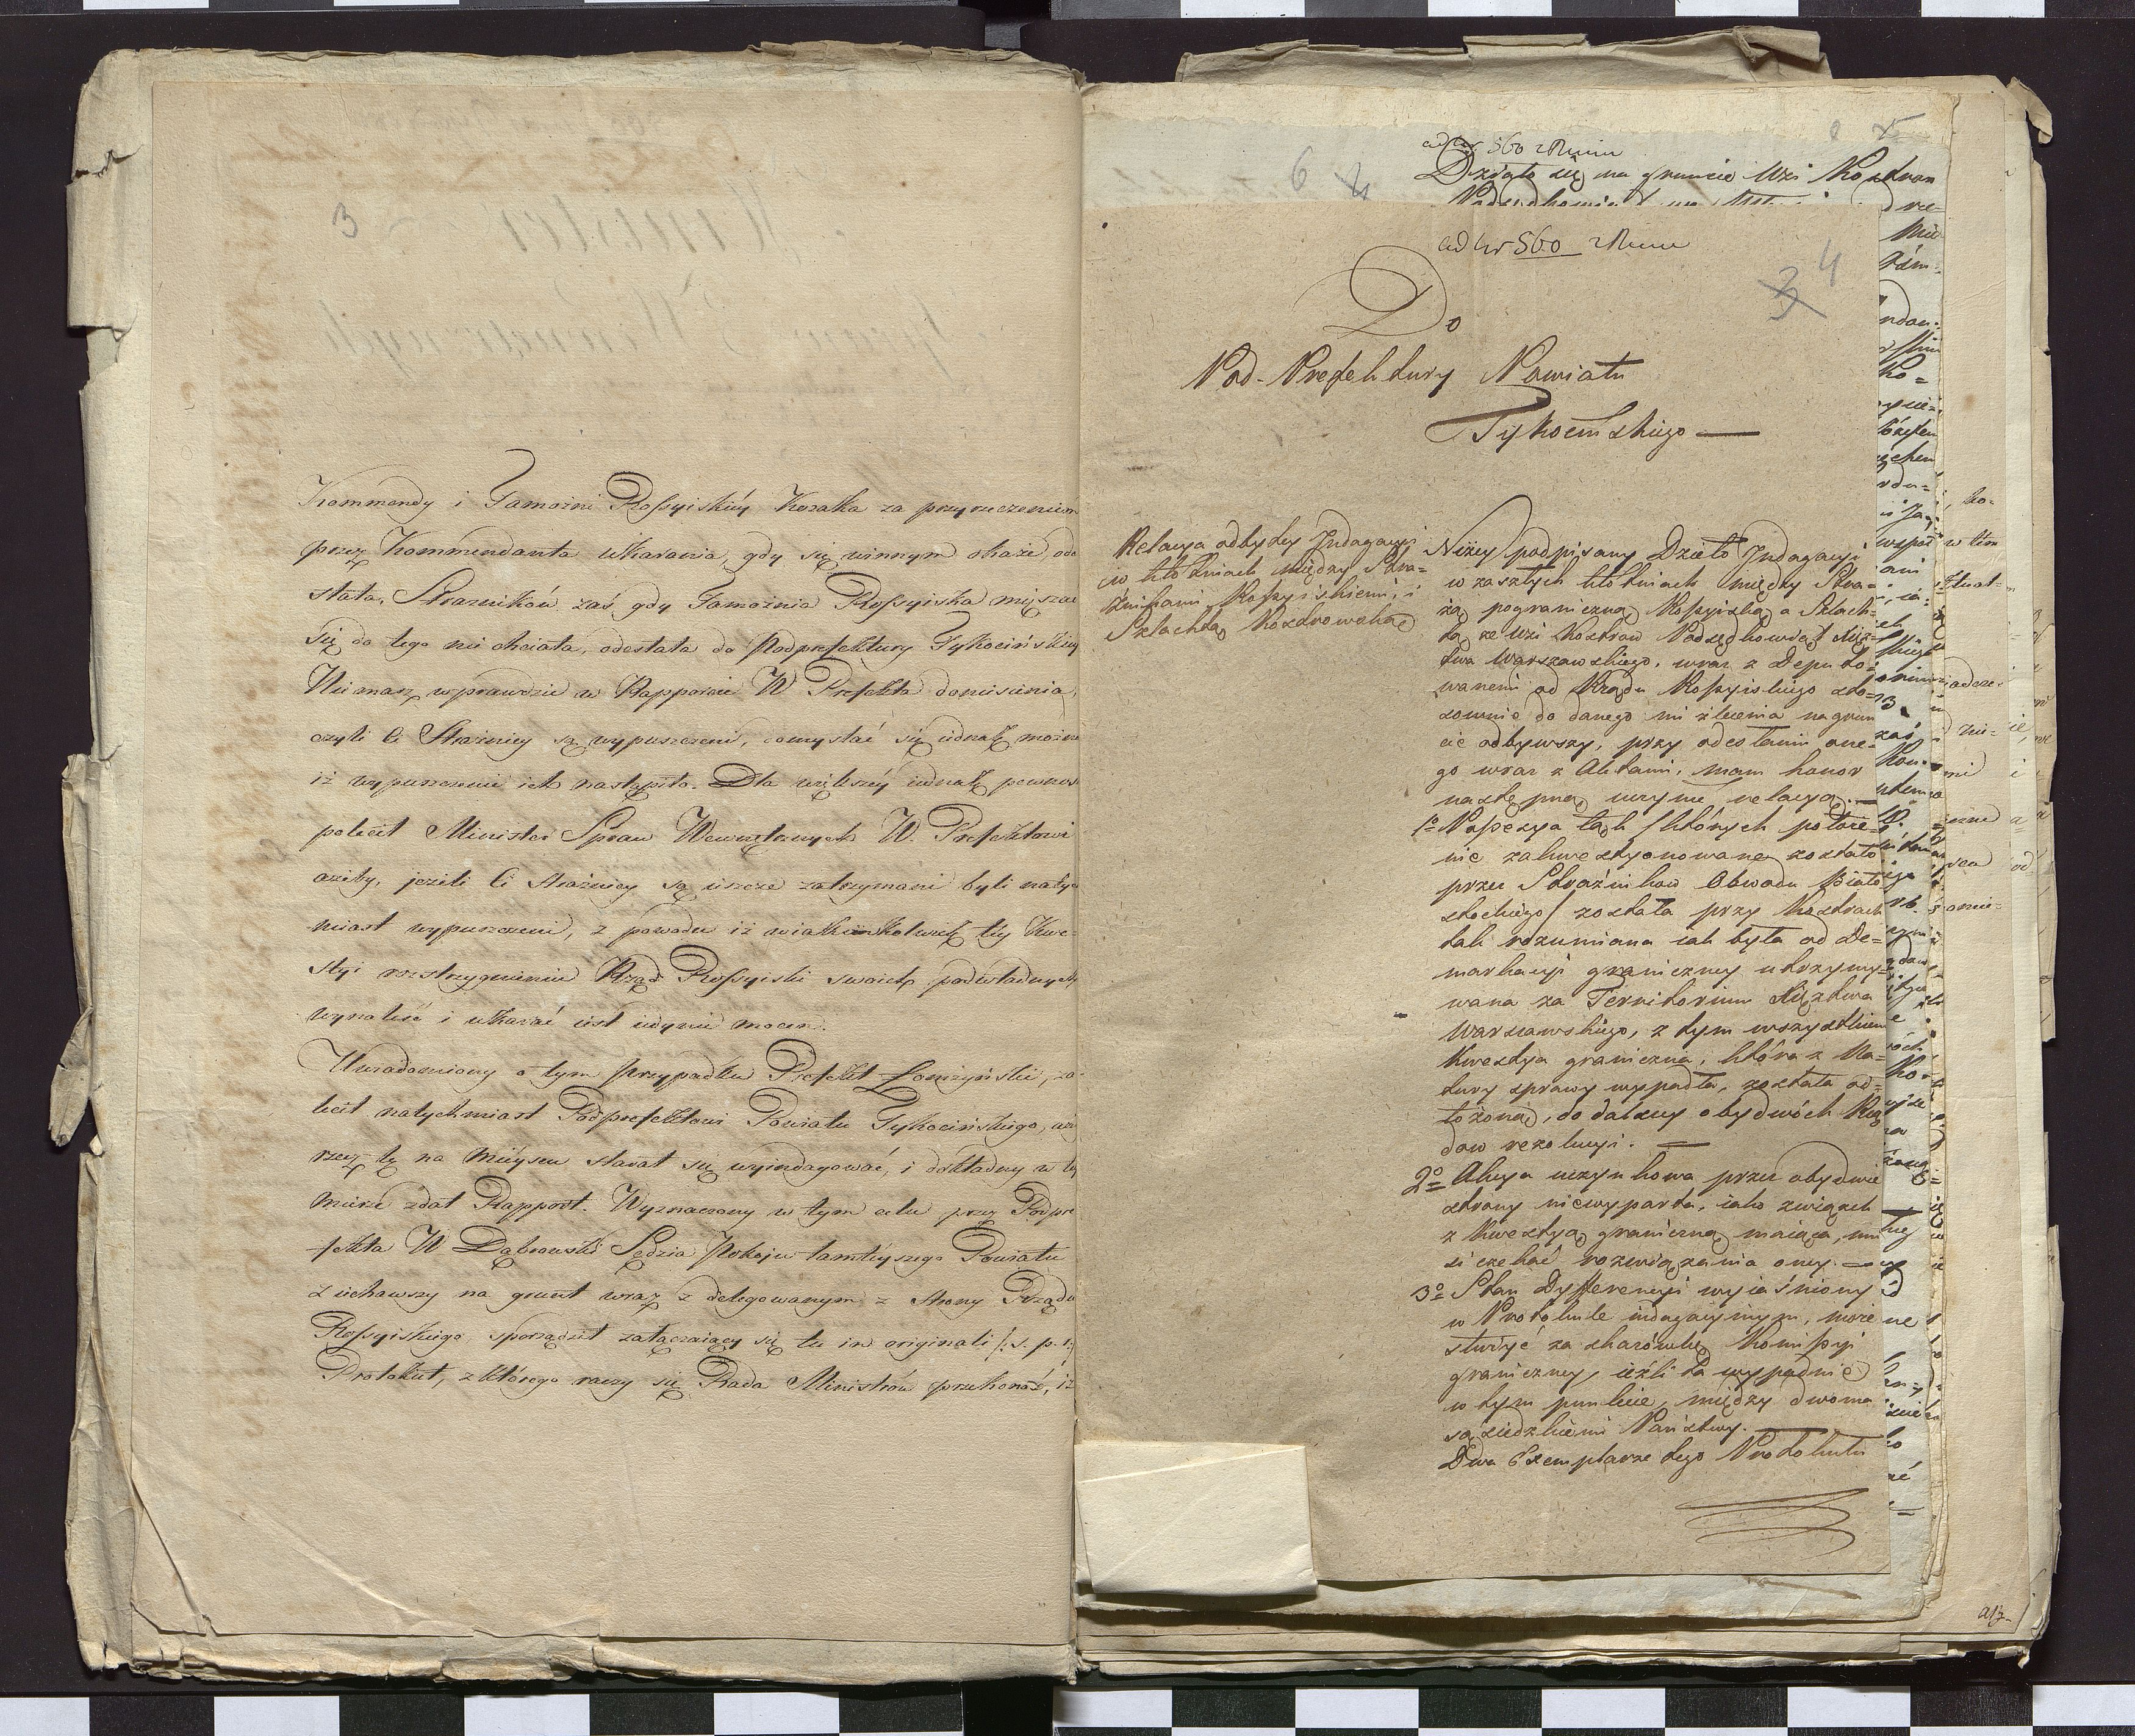 3
Kommendy i Tamożni Rossyiskiéy Kozaka za przyrzeczeniem
przez Kommendanta ukarania, gdy się winnym okaże, ode
słała, Strażników zaś gdy Tamożnia Rossyiska mięszać
się do tego nie chciała, odesłała do Podprefektury Tykocińskiéy
Nie masz wprawdzie w Rapporcie W Prefekta doniesienia,
czyli Ci Strażnicy są wypuszczeni, domyślać się iednak można
iż wypuszczenie ich nastąpiło. Dla większéy iednak pewnos
polecił Minister Spraw Wewnętrznych W. Prefektowi
ażeby, jeżeli Ci Strażnicy są ieszcze zatrzymani byli natych
miast wypuszczeni, z powodu iż wiakimkolwiek téy Kwe-
styi rozstrzygnieniu Rząd Rossyiski swoich podwładnych
wynaleść i ukarać iest iedynie mocen.
Uwiadomiony o tym przypadku Prefekt Łomżyński, za-
lecił natychmiast Podprefektowi Powiatu Tykocińskiego, aże
rzecz tę na mieyscu starał się wyindagować, i dokładny w téy
mierze zdał Rapport. Wyznaczony w tym celu przez Podpre
fekta W Dąbrowski Sędzia Pokoju tamtéyszego Powiatu
ziechawszy na grunt wraz z delegowanym z strony Rządu
Rossyiskiego sporządził załączaiący się tu in originali /: s. p. 1:/
Protokuł, z którego raczy się Rada Ministrów przekonać, iż
6
ad Nr 560
Działo się na gruncie Wsi Kostrow
ad Nr 560
3 4
Do
Pod-Prefektury Powiatu
Tykocińskiego
Relacya odbytey Jndagacyi
w kłótniach między Stra-
żnikami Rossyiskiemi, i
Szlachtą Kostrowską
Niżey podpisany Dzieło Jndagacyi
w zaszłych kłótniach między Stra-
żą pograniczną Rossyiską a Szlach-
tą ze Wsi Kostrow Podsędkowięt Xięz-
twa Warszawskiego, wraz z Deputo-
wanemi od Rządu Rossyiskiego sto-
sownie do danego mi zlecenia na grun
cie odbywszy, przy odesłaniu one-
go wraz z Aktami, mam honor
następną uczynić relacyą.
1o Possessya łąk /których położe-
nie zakwestyonowane zostało
przez Strażnikow Obwodu Biało
stockiego/ została przy Kostrach
tak rozumiana iak była od De-
markacyi graniczney utrzymy-
wana za Territorium Xięztwa
Warszawskiego, z tym wszystkiem
Kwestya graniczna, która z Na-
tury sprawy wypadła, została od-
łożoną, do dalszey obydwóch Rzą
dow rezolucyi.
2o Akcya uczynkowa przez obydwie
strony niewyparta, iako związek
z kwestyą graniczną maiąca, mu
si czekać rozwiązania oney.
3o Stan Dyfferencyi wyiaśniony
w Protokule indagacyinym, może
służyć za skazówkę Komissyi
graniczney, ieźli ta wypadnie
w tym punkcie, między dwoma
sąsiedzkiemi Państwy.
Dwa Exemplarze tego Protokułu